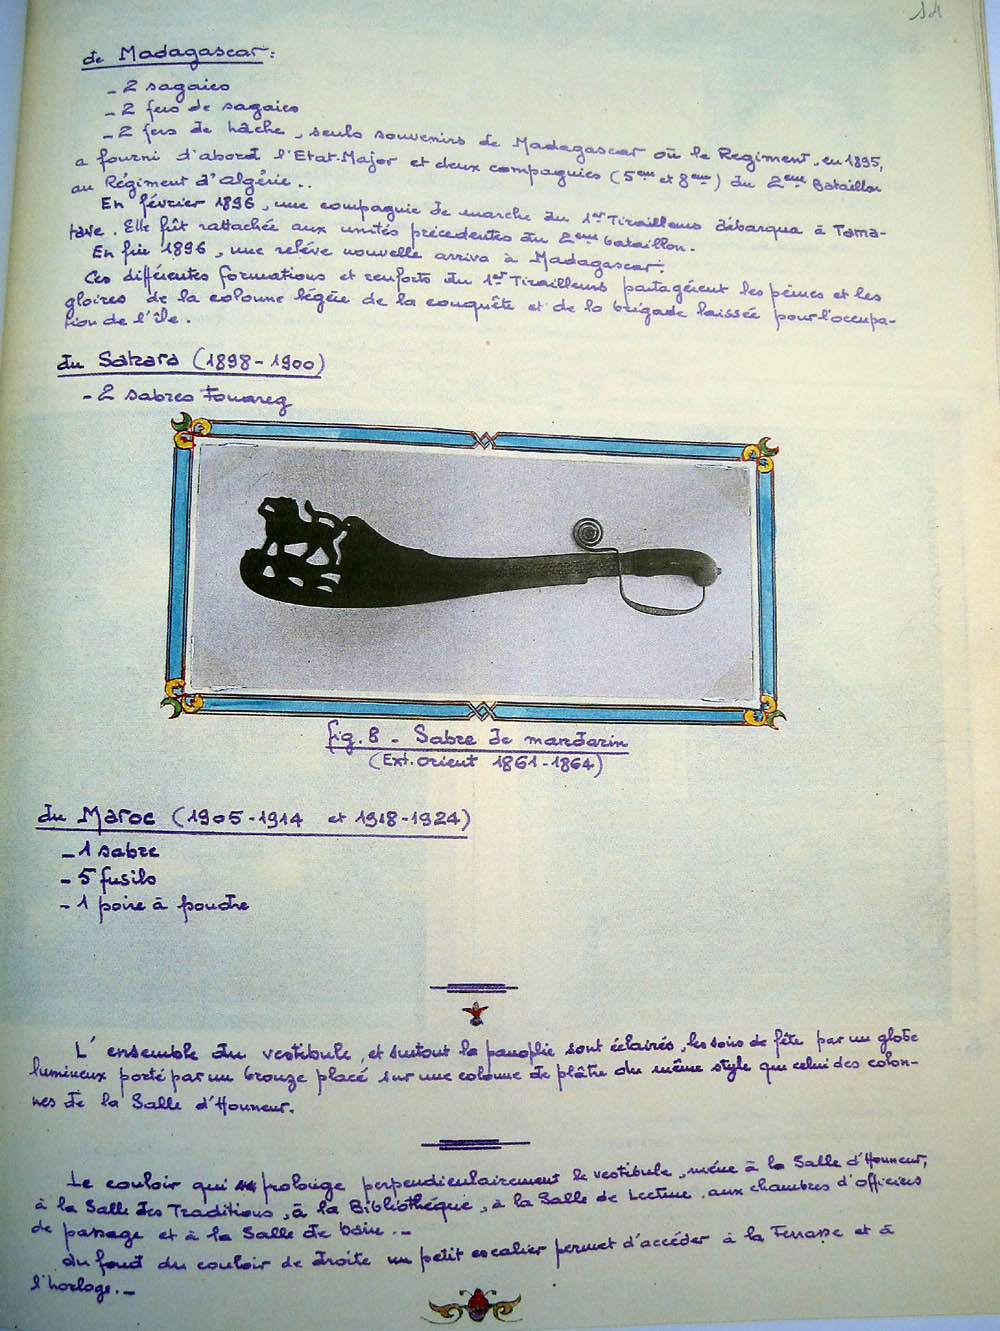 11
de Madagascar:
- 2 sagaies
- 2 fers de sagaies
- 2 fers de hache, seuls souvenirs de Madagascar où le Regiment, en 1895,
a fourni d'abord l'Etat-Major et deux compagnies (5eme et 8eme) du 2eme Bataillon
au Régiment d'Algérie..
En février 1896, une compagnie de marche du 1er Tirailleurs débarqua à Tama-
tave. Elle fût rattachée aux unités précédentes du 2eme bataillon.
En fin 1896, une relève nouvelle arriva à Madagascar.
Ces différentes formations et renforts du 1er Tirailleurs partagèrent les peines et les
gloires de la colonne légère de la conquête et de la brigade laissée pour l'occupa-
tion de l'île.
du Sahara (1898-1900)
- 2 sabres Touareg
fig. 8 - Sabre de mandarin
(Ext. orient 1861-1864)
du Maroc (1905-1914 et 1918-1924)
- 1 sabre
- 5 fusils
- 1 poire à poudre
L'ensemble du vestibule, et surtout la panoplie sont éclairés, les soirs de fête par un globe
lumineux porté par un bronze placé sur une colonne de plâtre du même style que celui des colon-
nes de la Salle d'Honneur.
Le couloir qui prolonge perpendiculairement le vestibule, mène à la Salle d'Honneur,
à la Salle des Traditions, à la Bibliothéque, à la Salle de Lecture, aux chambres d'officiers
de passage et à la Salle de bain.-
Au fond du couloir de droite un petit escalier permet d'accéder à la Terrasse et à
l'horloge.-